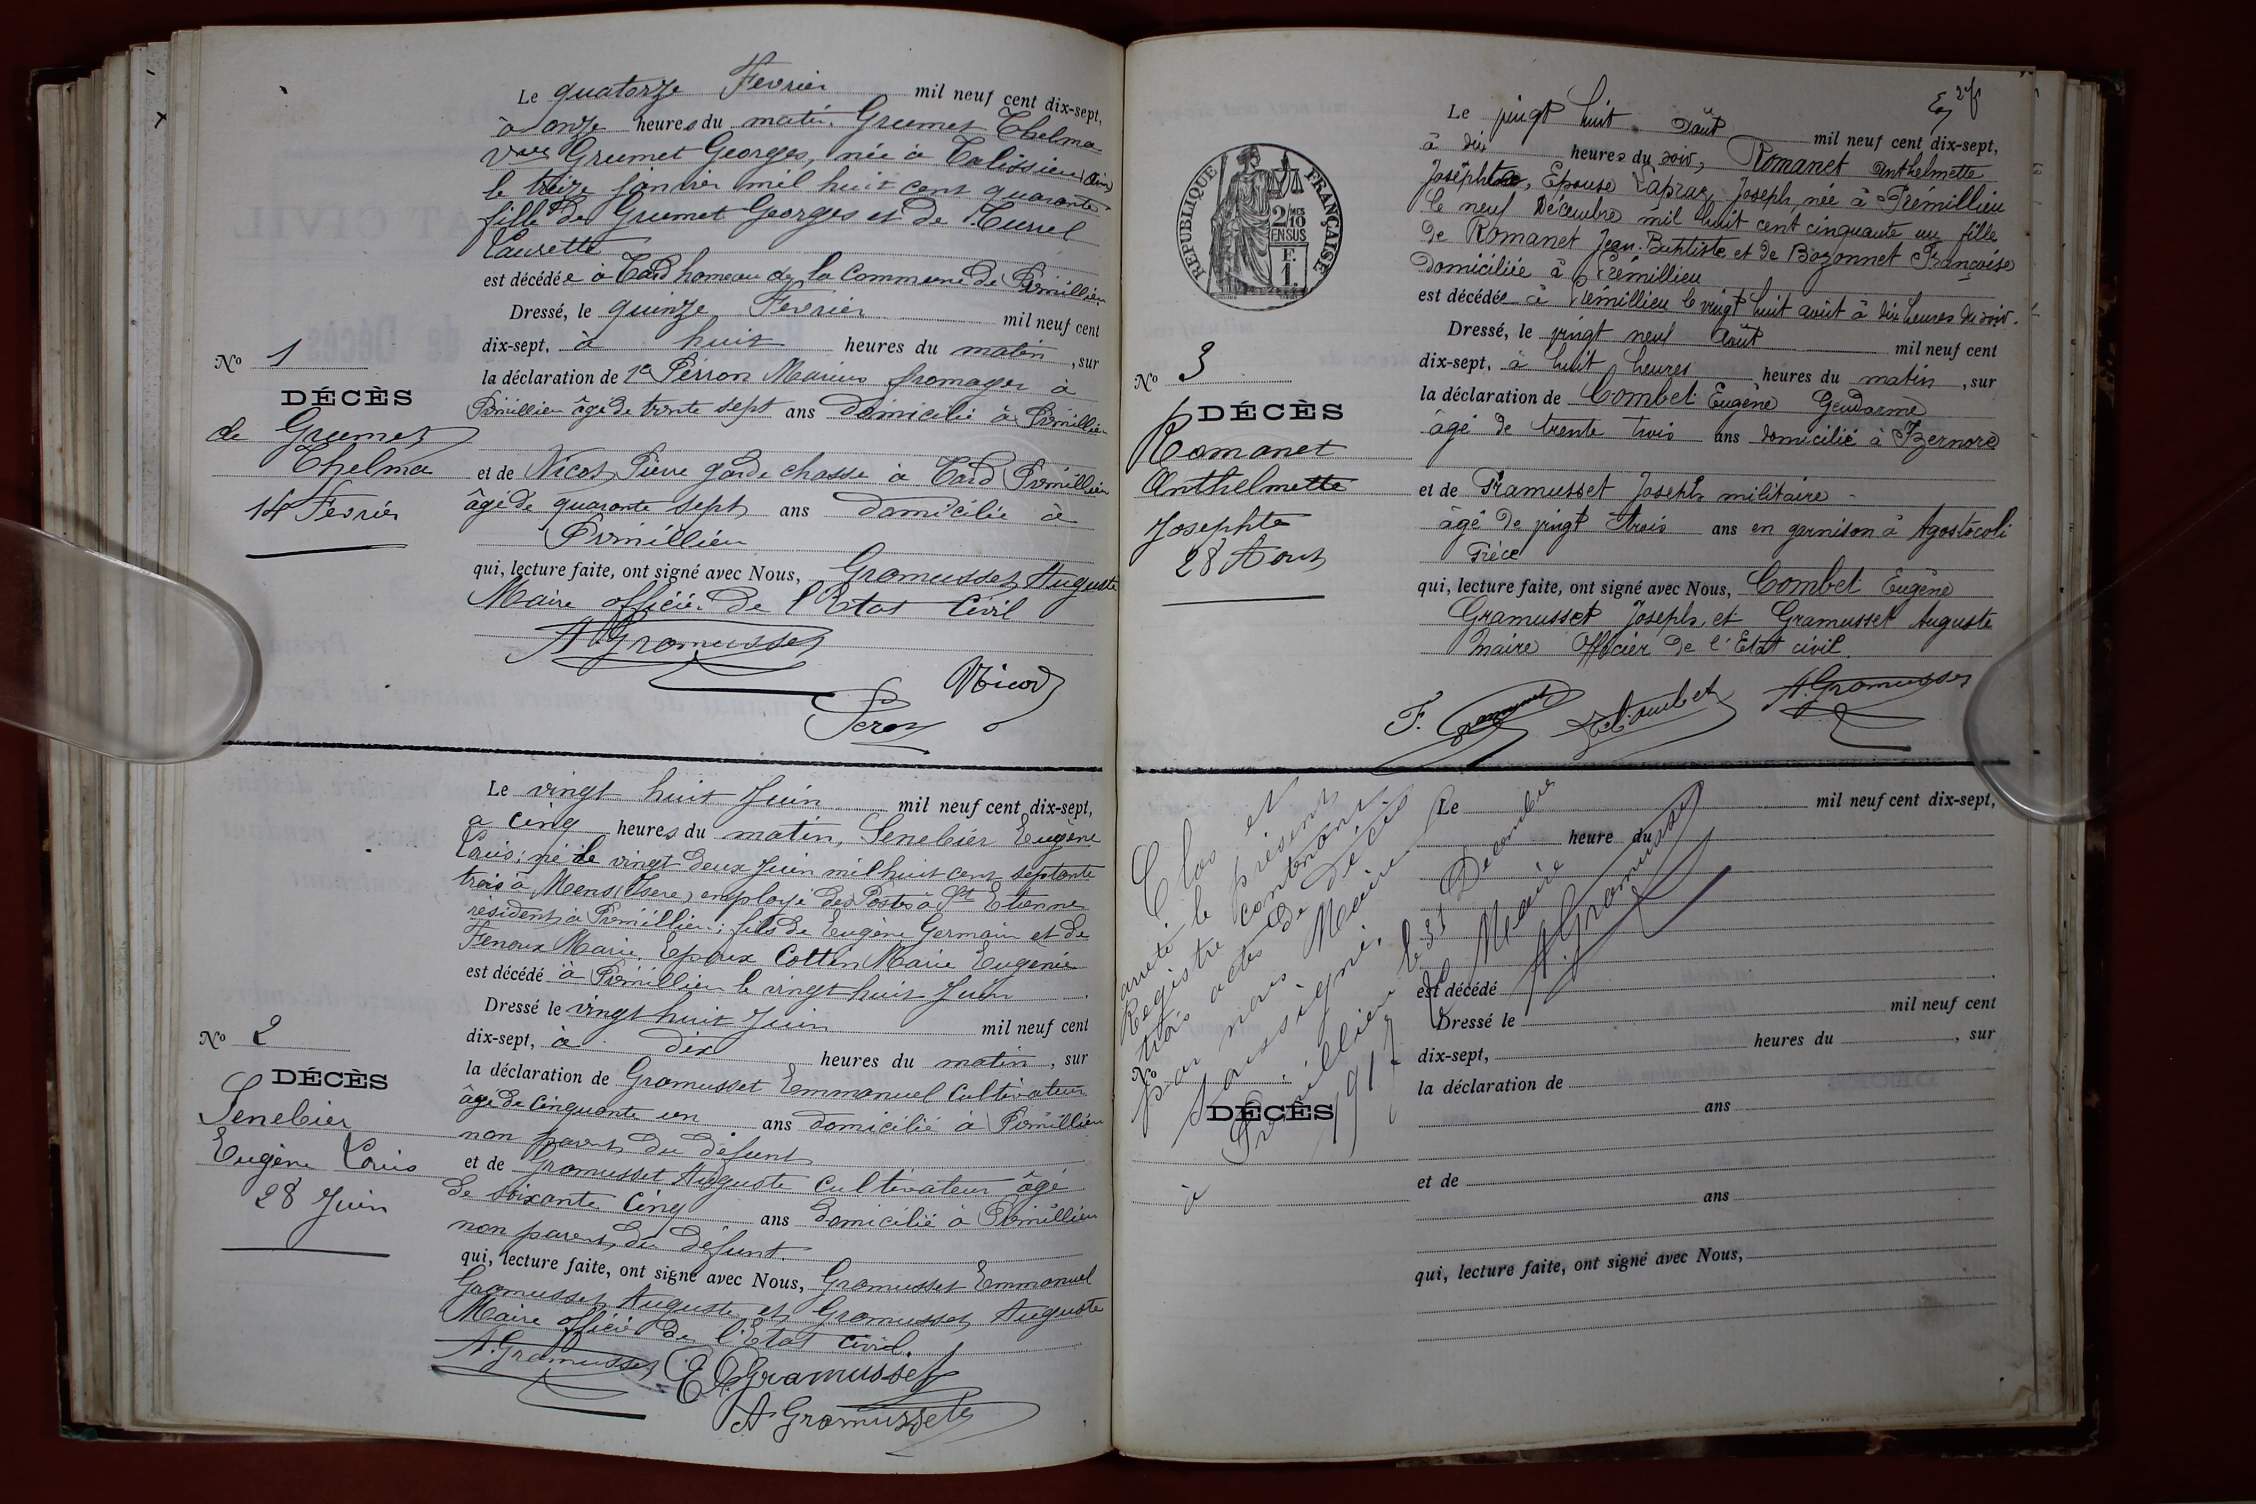 Le quatorze Fevrier mil neuf cent dix-sept,
à onze heures du matin. Grumet Thelma
Vve Grumet Georges, née à Talissieu (Ain)
le treize janvier mil huit cent quarante
fille de Grumet Georges et de
Laurette
est décédée à Tard hameau de la commune de Prémillieu
Dressé, le quinze Fevrier mil neuf cent
dix-sept, à huit heures du matin, sur
la déclaration de 1e Perron Marius fromager à
Prémillieu âgé de trente sept ans domicilié à Prémillieu
et de Nicod Pierre garde chasse à Tard Prémillieu
âgé de quarante sept ans domicilié à
Prémillieu
qui, lecture faite, ont signé avec Nous, Gramusset Auguste
Maire officier de l'Etat Civil
A. Gramusset
Nicod
Peron
No 1
DÉCÈS
de Grumet
Thelma
14 Fevrier
Le vingt huit Juin mil neuf cent dix-sept,
a cinq heures du matin, Senebier Eugène
Louis; né le vingt deux Juin mil huit cent septante
trois à Mens (Isère) employé des Postes à St Etienne
résident à Prémillieu; fils de Eugène Germain et de
Fenoux Marie Epoux Cotten Marie Eugénie
est décédé à Prémillieu le vingt huit Juin
Dressé le vingt huit Juin mil neuf cent
dix-sept, à dix heures du matin, sur
la déclaration de Gramusset Emmanuel Cultivateur
âgé de cinquante un ans domicilié à Prémillieu
non parent du défunt
et de Gramusset Auguste cultivateur âgé
de soixante cinq ans domicilié à Prémillieu
non parent du défunt
qui, lecture faite, ont signé avec Nous, Gramusset Emmanuel
Gramusset Auguste et Gramusset Auguste
Maire officier de l'Etat civil.
A. Gramusset
E Gramusset
A Gramusset
No 2
DÉCÈS
Senebier
Eugène Louis
28 Juin
RÉPUBLIQUE FRANÇAISE
2/10 EN SUS
F. 1.
Le vingt huit Août mil neuf cent dix-sept,
à dix heures du soir, Romanet Anthelmette
Josephte, Epouse Lapraz Joseph, née à Prémillieu
le neuf Décembre mil huit cent cinquante un fille
de Romanet Jean-Baptiste et de Bozonnet Françoise
domiciliée à Prémillieu
est décédée à Prémillieu le vingt huit août à dix heures du soir.
Dressé, le vingt neuf Août mil neuf cent
dix-sept, à huit heures heures du matin, sur
la déclaration de Combet Eugène Gendarme
âgé de trente trois ans domicilié à Izernore
et de Gramusset Joseph militaire
âgé de vingt trois ans en garnison à Agostocoli
Grèce
qui, lecture faite, ont signé avec Nous, Combet Eugène
Gramusset Joseph, et Gramusset Auguste
Maire Officier de l'Etat civil.
Combet
A. Gramusset
No 3
DÉCÈS
Romanet
Anthelmette
Josephte
28 Aout
Clos et
arrêté le présent
Registre contenant
trois actes de décès
par nous Maire
soussigné.
Prémillieu le 31 Décembre
1917
Le Maire
A. Gramusset
Le mil neuf cent dix-sept,
heure du
est décédé
Dressé le mil neuf cent
dix-sept, heures du , sur
la déclaration de
ans
et de
ans
qui, lecture faite, ont signé avec Nous,
No
DÉCÈS
à